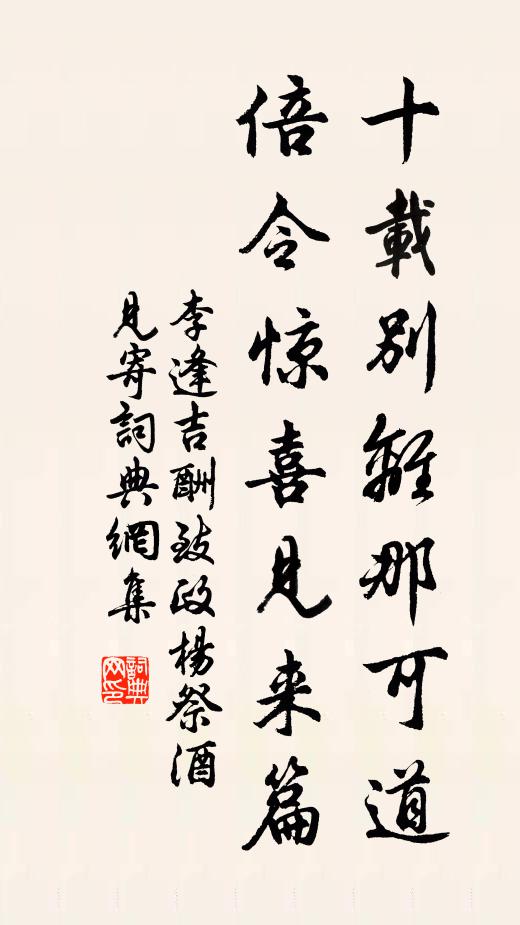 十載別離那可道
倍令惊喜見来篇
李逢吉酬致政楊祭酒
見寄詞典網集
詞典網印